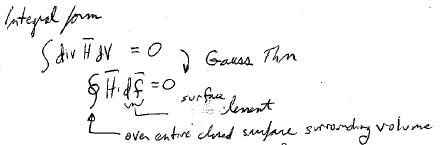 Integral form
∫ div H̄ dV = 0
Gauss Thm
∮ H̄ · df̄ = 0
surface element
over entire closed surface surrounding volume